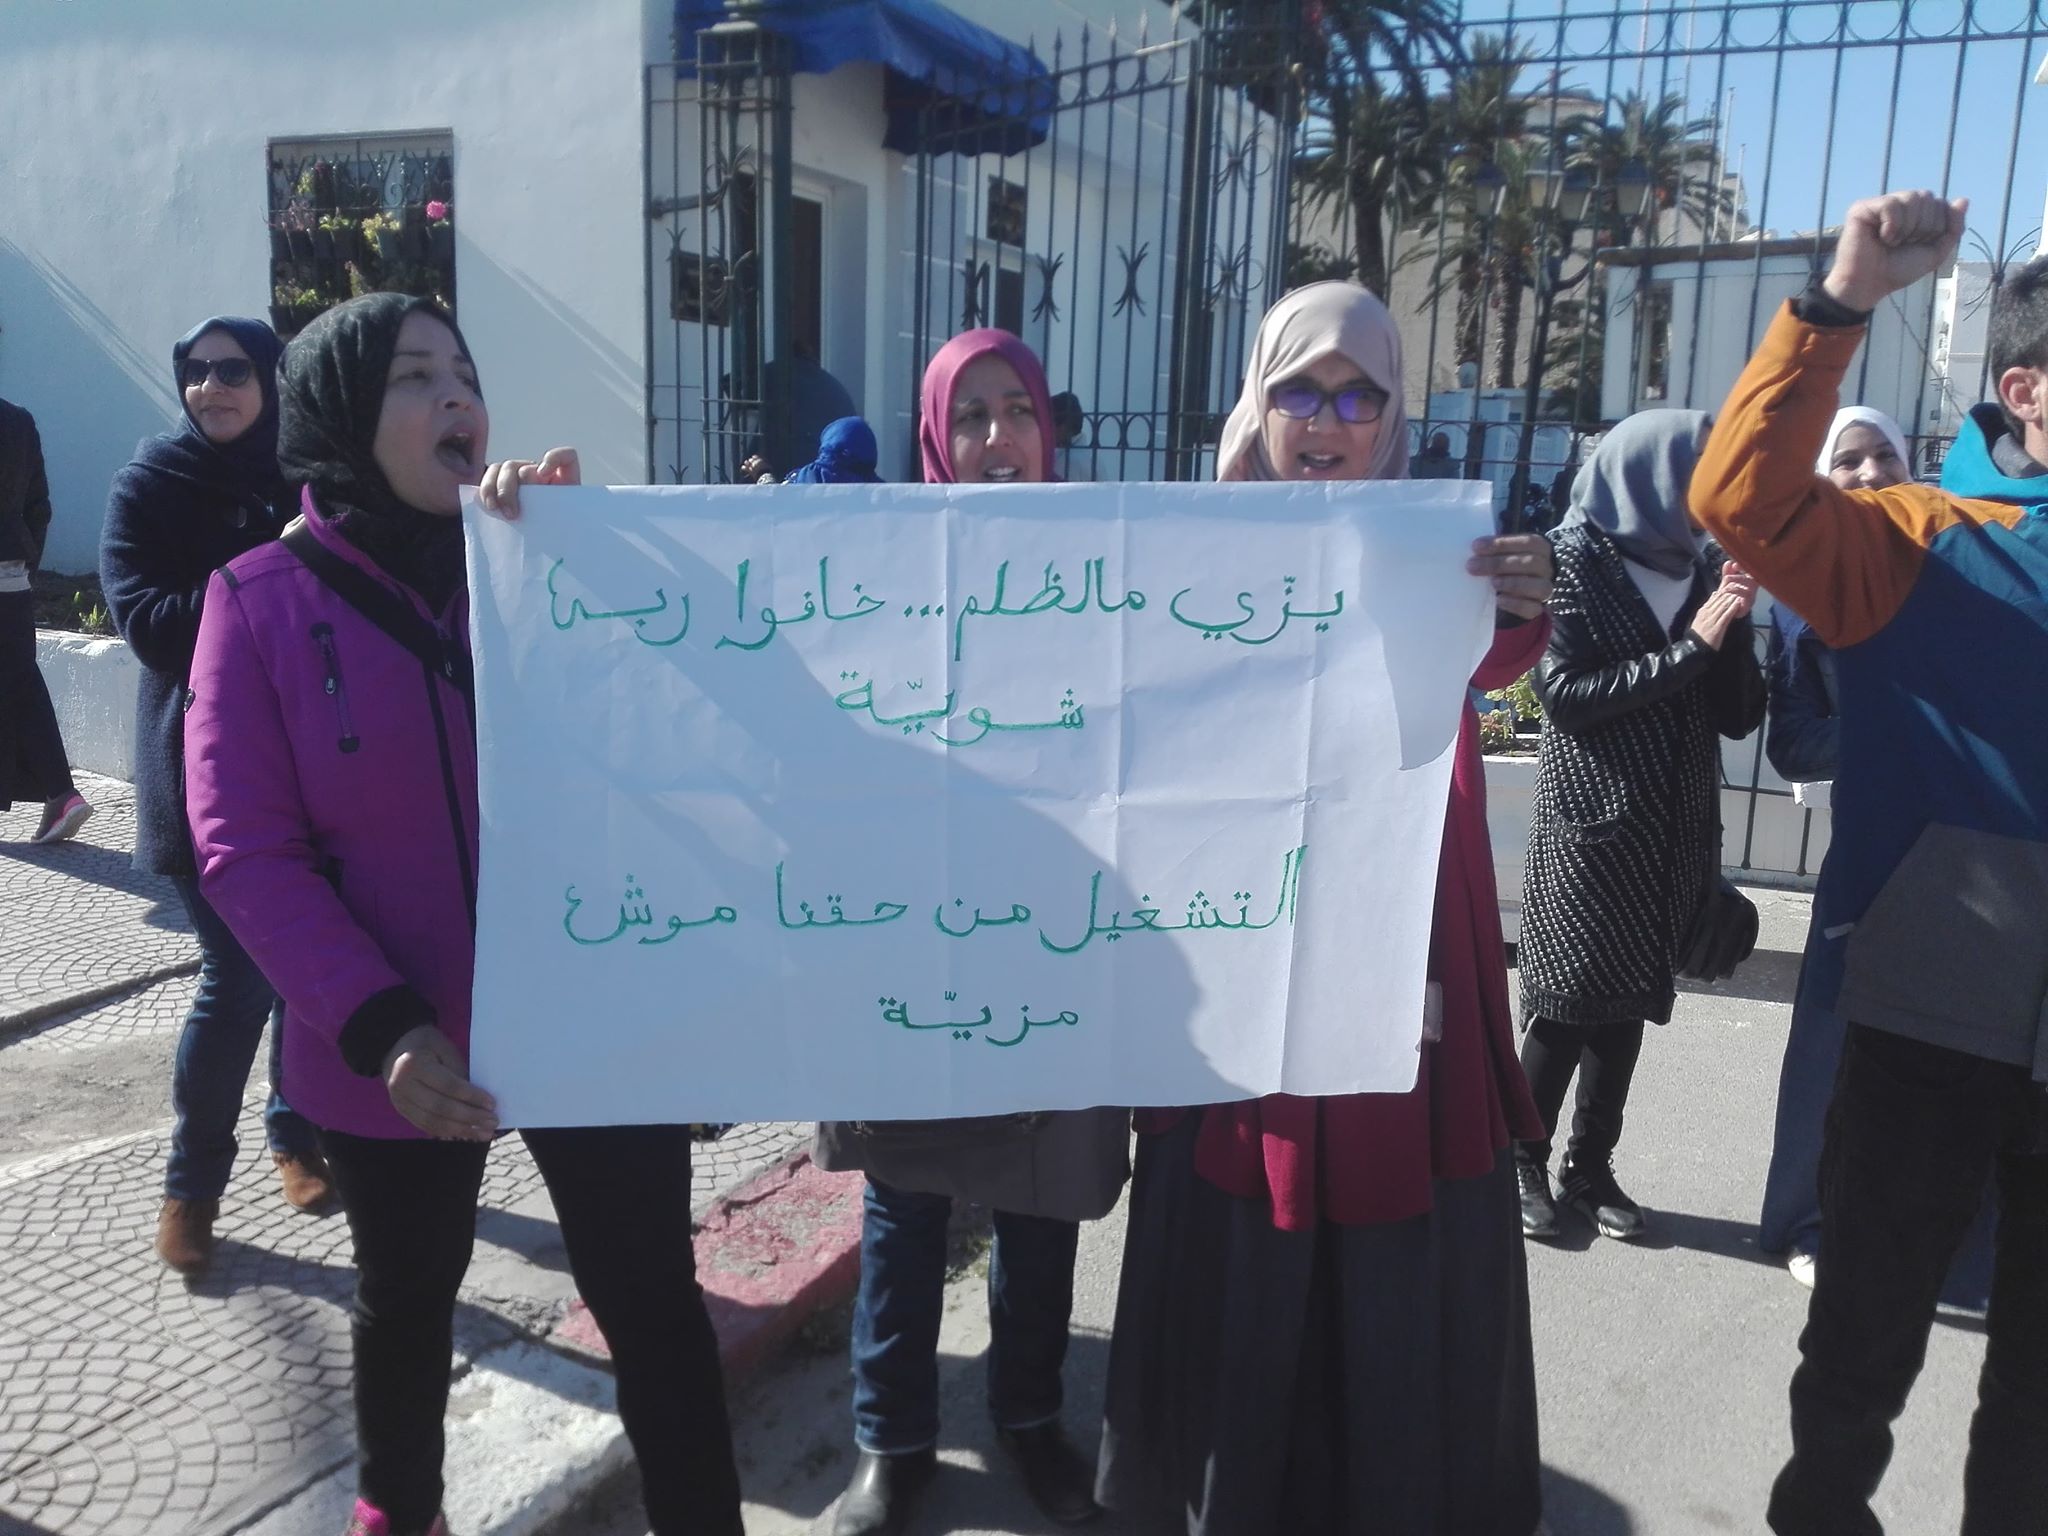 يزّي مالظلم... خافوا ربي
شويّة
التشغيل من حقنا موش
مزيّة